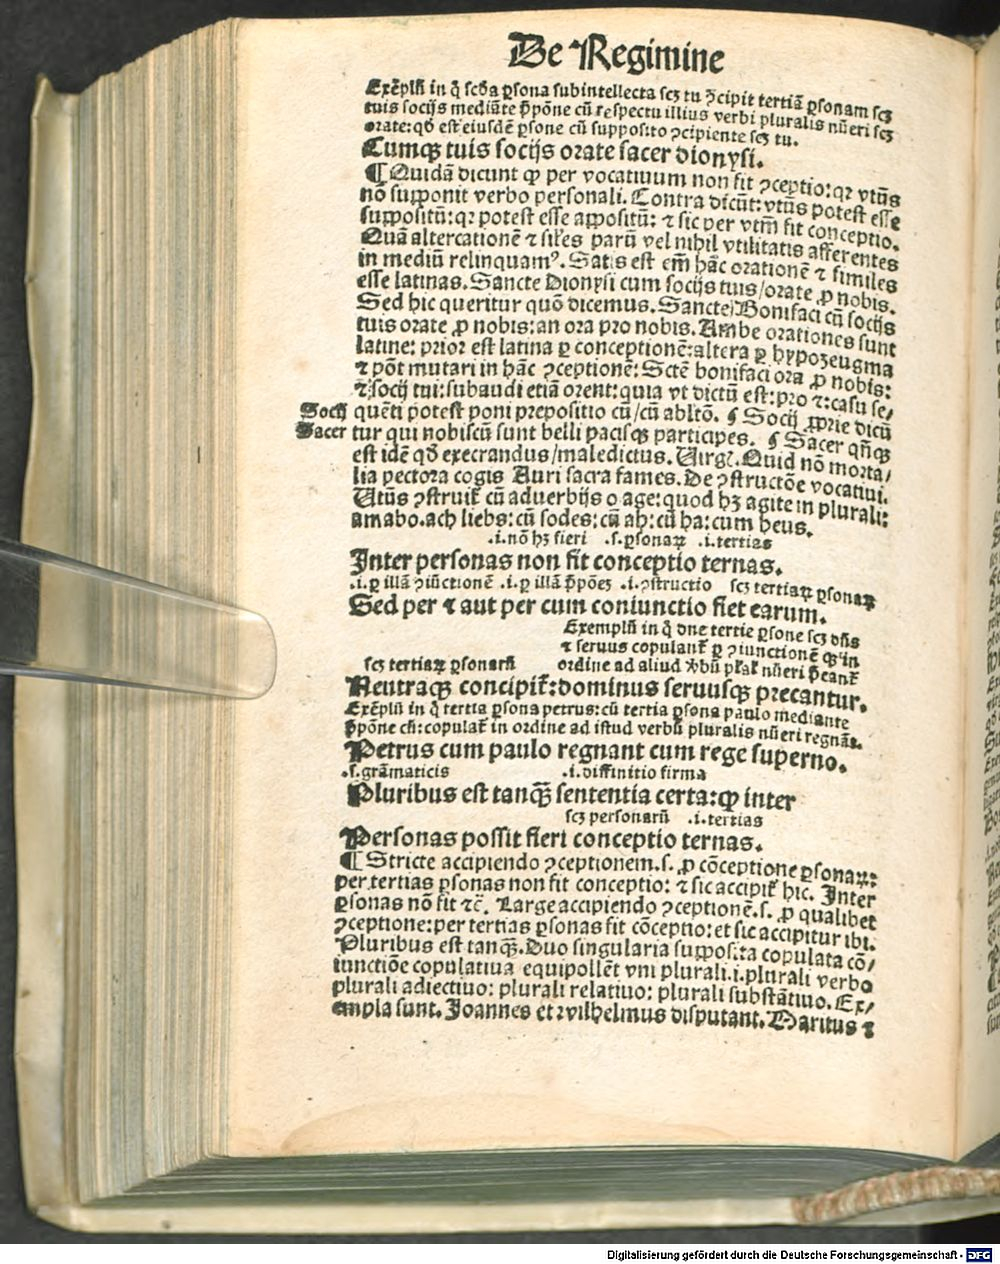 De Regimine
Exēplū in q̄ scďa ꝑsona subintellecta scꝫ tu ↄcipit tertiā ꝑsonam scꝫ
tuis socijs mediāte p̄pōne cū respectu illius verbi pluralis nūeri scꝫ
orate: qď est eiusdē ꝑsone cū supposito ↄcipiente scꝫ tu.
Cumqꝫ tuis socijs orate sacer dionysi.
¶ Quidā dicunt ꝙ per vocatiuum non fit ↄceptio: qꝛ vtūs
nō supponit verbo personali. Contra dicūt: vtūs potest esse
suppositū: qꝛ potest esse appositū: ⁊ sic per vtm̄ fit conceptio.
Quā altercationē ⁊ siles parū vel nihil vtilitatis afferentes
in mediū relinquamꝰ. Satis est em̄ hāc orationē ⁊ similes
esse latinas. Sancte Dionysi cum socijs tuis/orate ꝓ nobis.
Sed hic queritur quō dicemus. Sancte/Bonifaci cū socijs
tuis orate ꝓ nobis: an ora pro nobis. Ambe orationes sunt
latine: prior est latina ꝑ conceptionē: altera ꝑ hypozeugma
⁊ pōt mutari in hāc ↄceptionē: Sctē bonifaci ora ꝓ nobis:
⁊: socij tui: subaudi etiā orent: quia vt dictū est: pro ⁊: casu se/
Socij quēti potest poni prepositio cū/cū abltō. ¶ Socij ꝓprie dicū
Sacer tur qui nobiscū sunt belli pacisqꝫ participes. ¶ Sacer qn̄qꝫ
est idē qď execrandus/maledictus. Virgꝭ. Quid nō morta/
lia pectora cogis Auri sacra fames. De ↄstructōe vocatiui.
Vtūs ↄstruit̄ cū aduerbijs o age: quod hꝫ agite in plurali:
amabo. ach liebs: cū sodes: cū ah: cū ha: cum heus.
.i. nō hꝫ fieri .s. ꝑsonaꝝ .i. tertias
Inter personas non fit conceptio ternas.
.i. ꝑ illā ↄiūctionē .i. ꝑ illā p̄pōeꝫ .i. ↄstructio scꝫ tertiaꝝ ꝑsonaꝝ
Sed per ⁊ aut per cum coniunctio fiet earum.
Exemplū in q̄ due tertie ꝑsone scꝫ dn̄s
⁊ seruus copulant̄ ꝑ ↄiunctionē qꝫ in
scꝫ tertiaꝝ ꝑsonarū ordine ad aliud v̓bū pl̄al̄ nūeri p̄cant̄
Neutraqꝫ concipit̄: dominus seruusqꝫ precantur.
Exēplū in q̄ tertia ꝑsona petrus: cū tertia ꝑsona paulo mediante
p̄pōne cū: copulat̄ in ordine ad istud verbū pluralis nūeri regnāt.
Petrus cum paulo regnant cum rege superno.
.s. grāmaticis .i. diffinitio firma
Pluribus est tanqꝫ̄ sententia certa: ꝙ inter
scꝫ personarū .i. tertias
Personas possit fieri conceptio ternas.
¶ Stricte accipiendo ↄceptionem .s. ꝓ cōceptione ꝑsonaꝝ:
per tertias ꝑsonas non fit conceptio: ⁊ sic accipit̄ hic. Inter
ꝑsonas nō fit ⁊c̄. Large accipiendo ↄceptionē .s. ꝓ qualibet
ↄceptione: per tertias ꝑsonas fit cōceptio: et sic accipitur ibi.
Pluribus est tanqꝫ̄. Duo singularia supposita copulata cō/
iunctiōe copulatiua equipollēt vni plurali .i. plurali verbo
plurali adiectiuo: plurali relatiuo: plurali substātiuo. Ex/
empla sunt. Joannes et wilhelmus disputant. Maritus ⁊
Digitalisierung gefördert durch die Deutsche Forschungsgemeinschaft - DFG